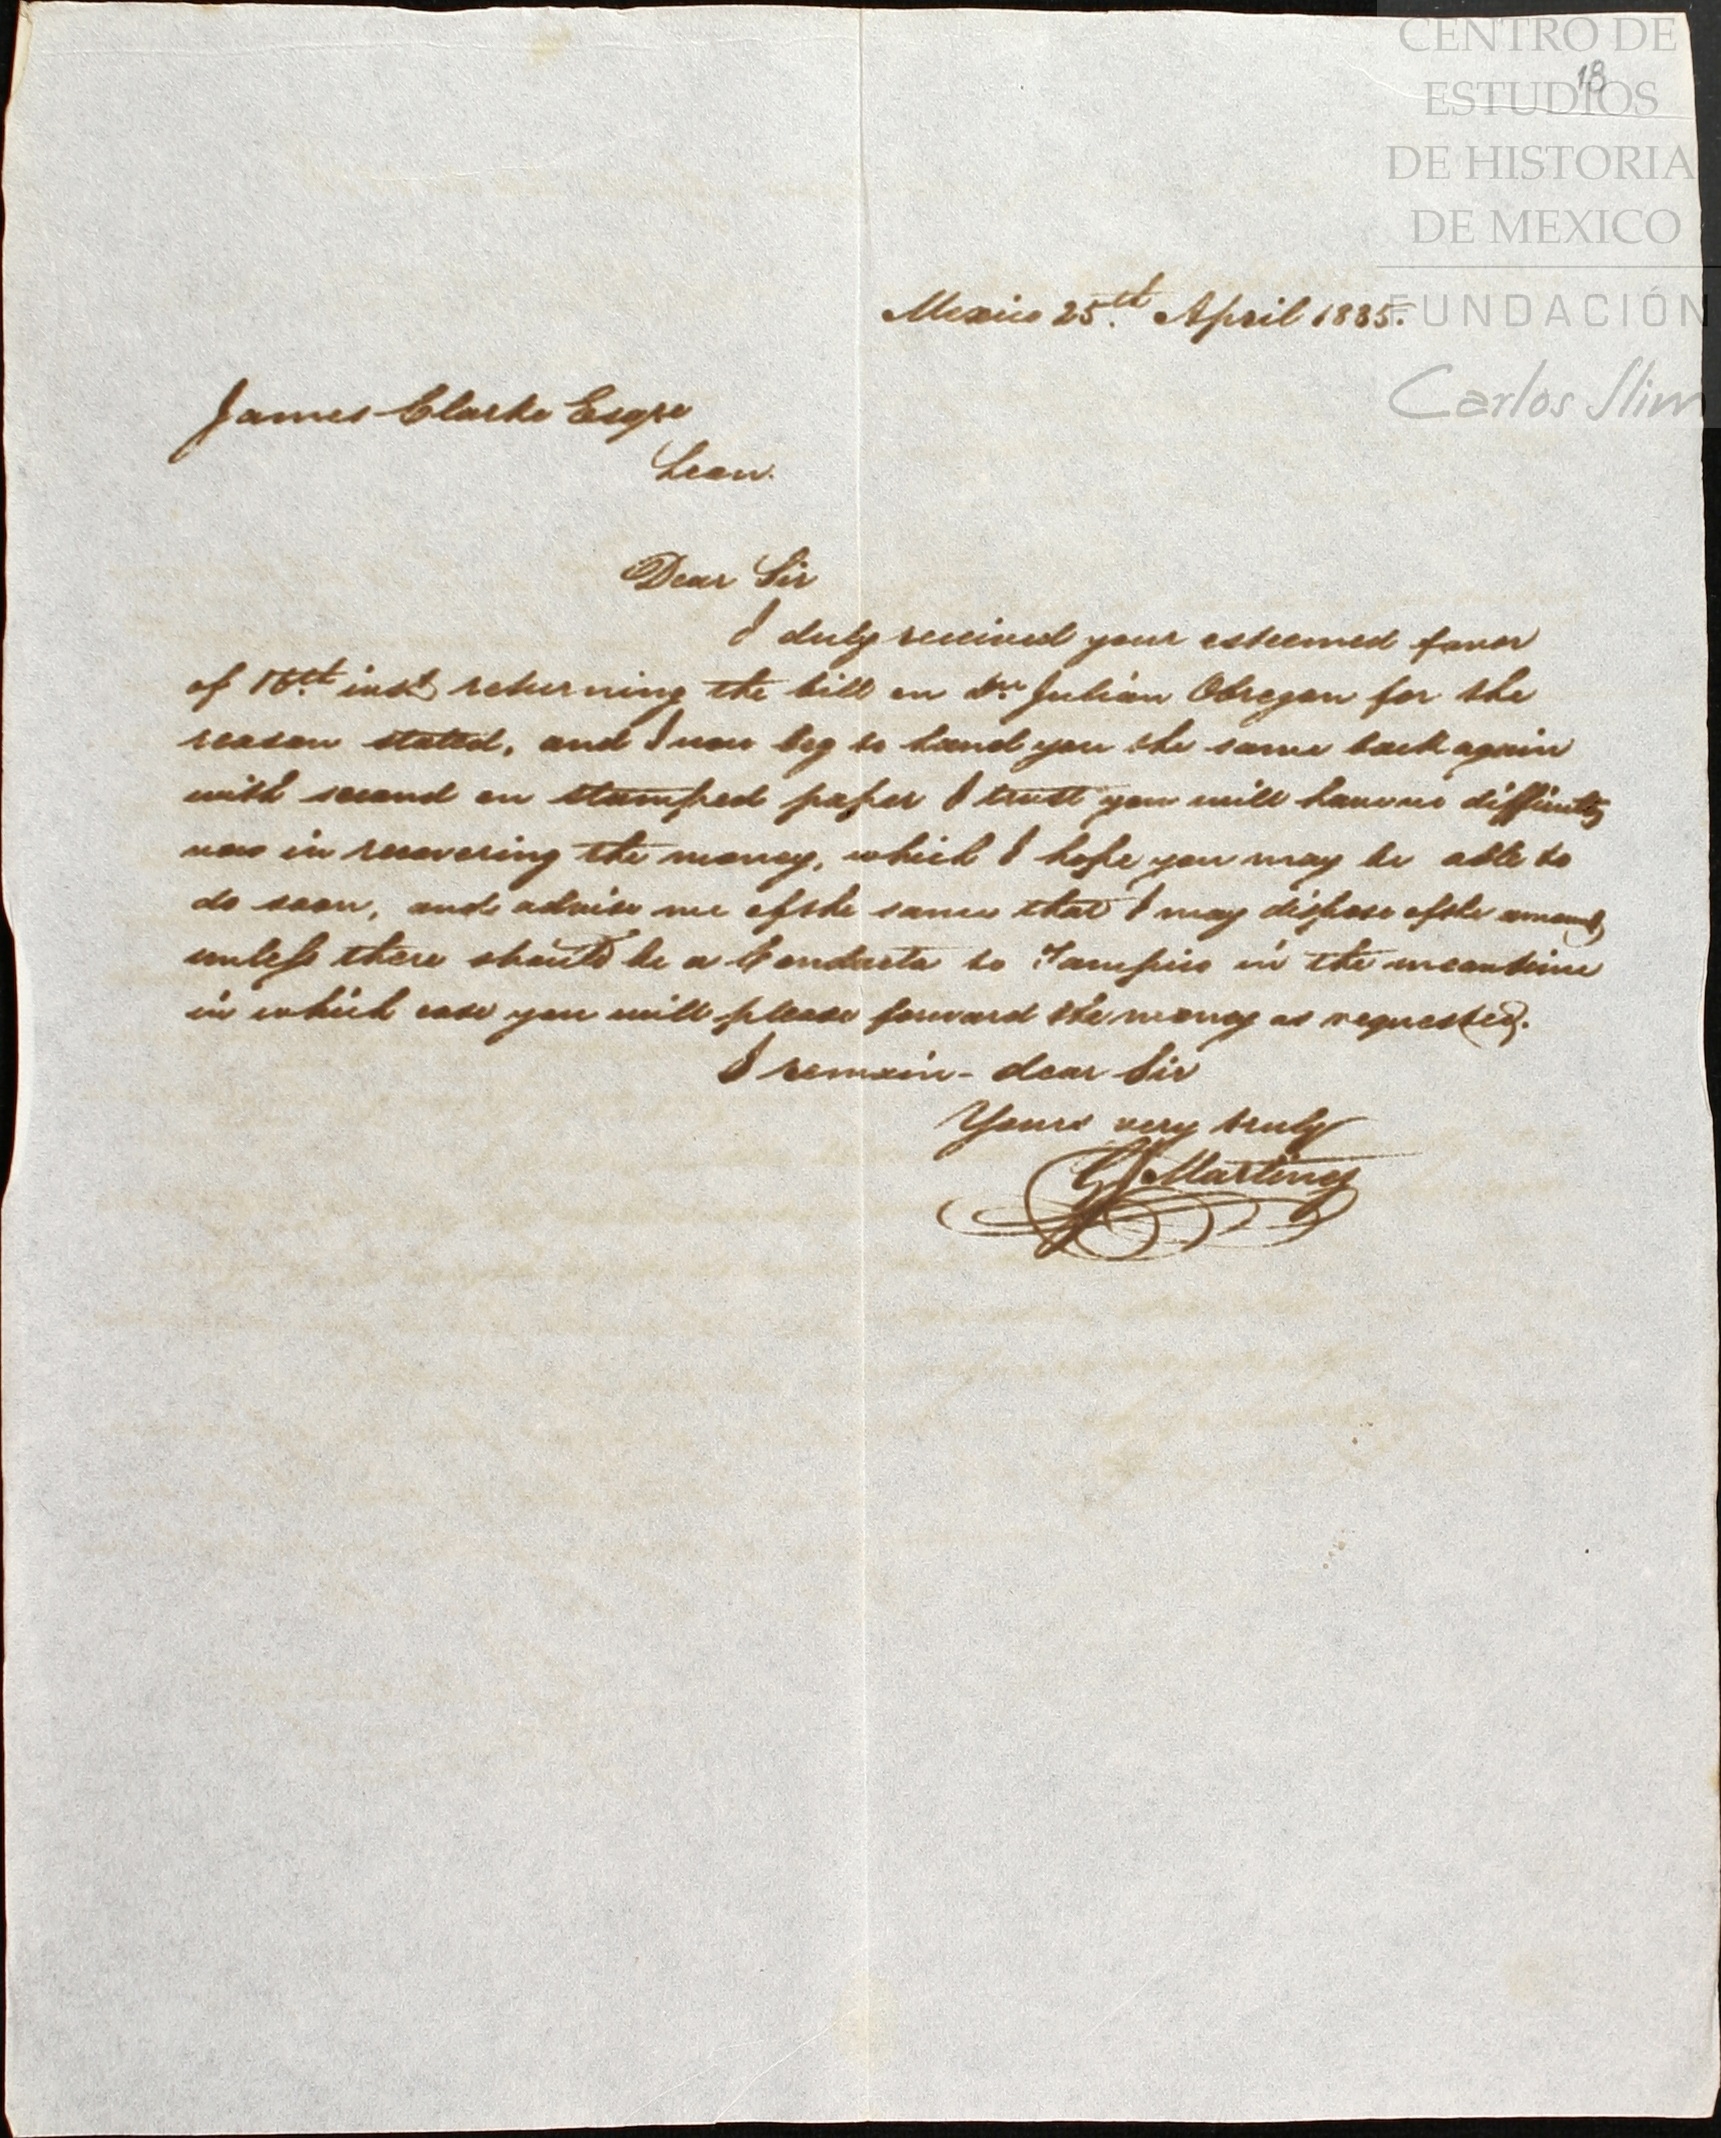 CENTRO DE
ESTUDIOS
DE HISTORIA
DE MEXICO
FUNDACIÓN
Carlos Slim
18
Mexico 25.th April 1835.
James Clarke Esqre
Leon.
Dear Sir
I duly received your esteemed favor
of 16.th inst returning the bill on Dn. Julián Obregon for the
reason stated, and I now beg to hand you the same back again
with second on stamped paper I trust you will have no difficulty
now in recovering the money, which I hope you may be able to
do soon, and advise me of the same that I may dispose of the amount,
unless there should be a Conducta to Tampico in the meantime
in which case you will please forward the money as requested.
I remain - dear Sir
Yours very truly
Martinez